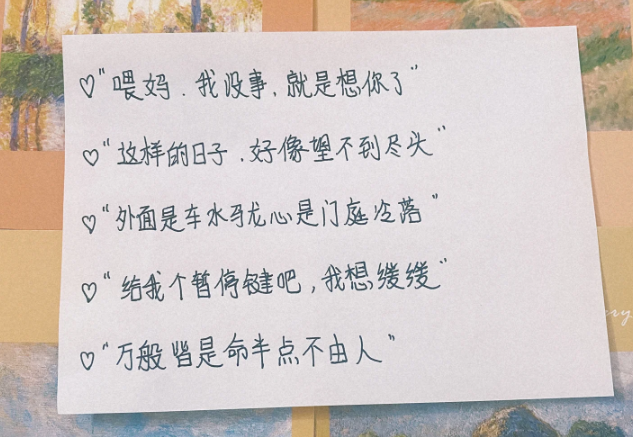 ♡“喂妈.我没事,就是想你了”
♡“这样的日子.好像望不到尽头”
♡“外面是车水马龙心是门庭冷落”
♡“给我个暂停键吧,我想缓缓”
♡“万般皆是命半点不由人”